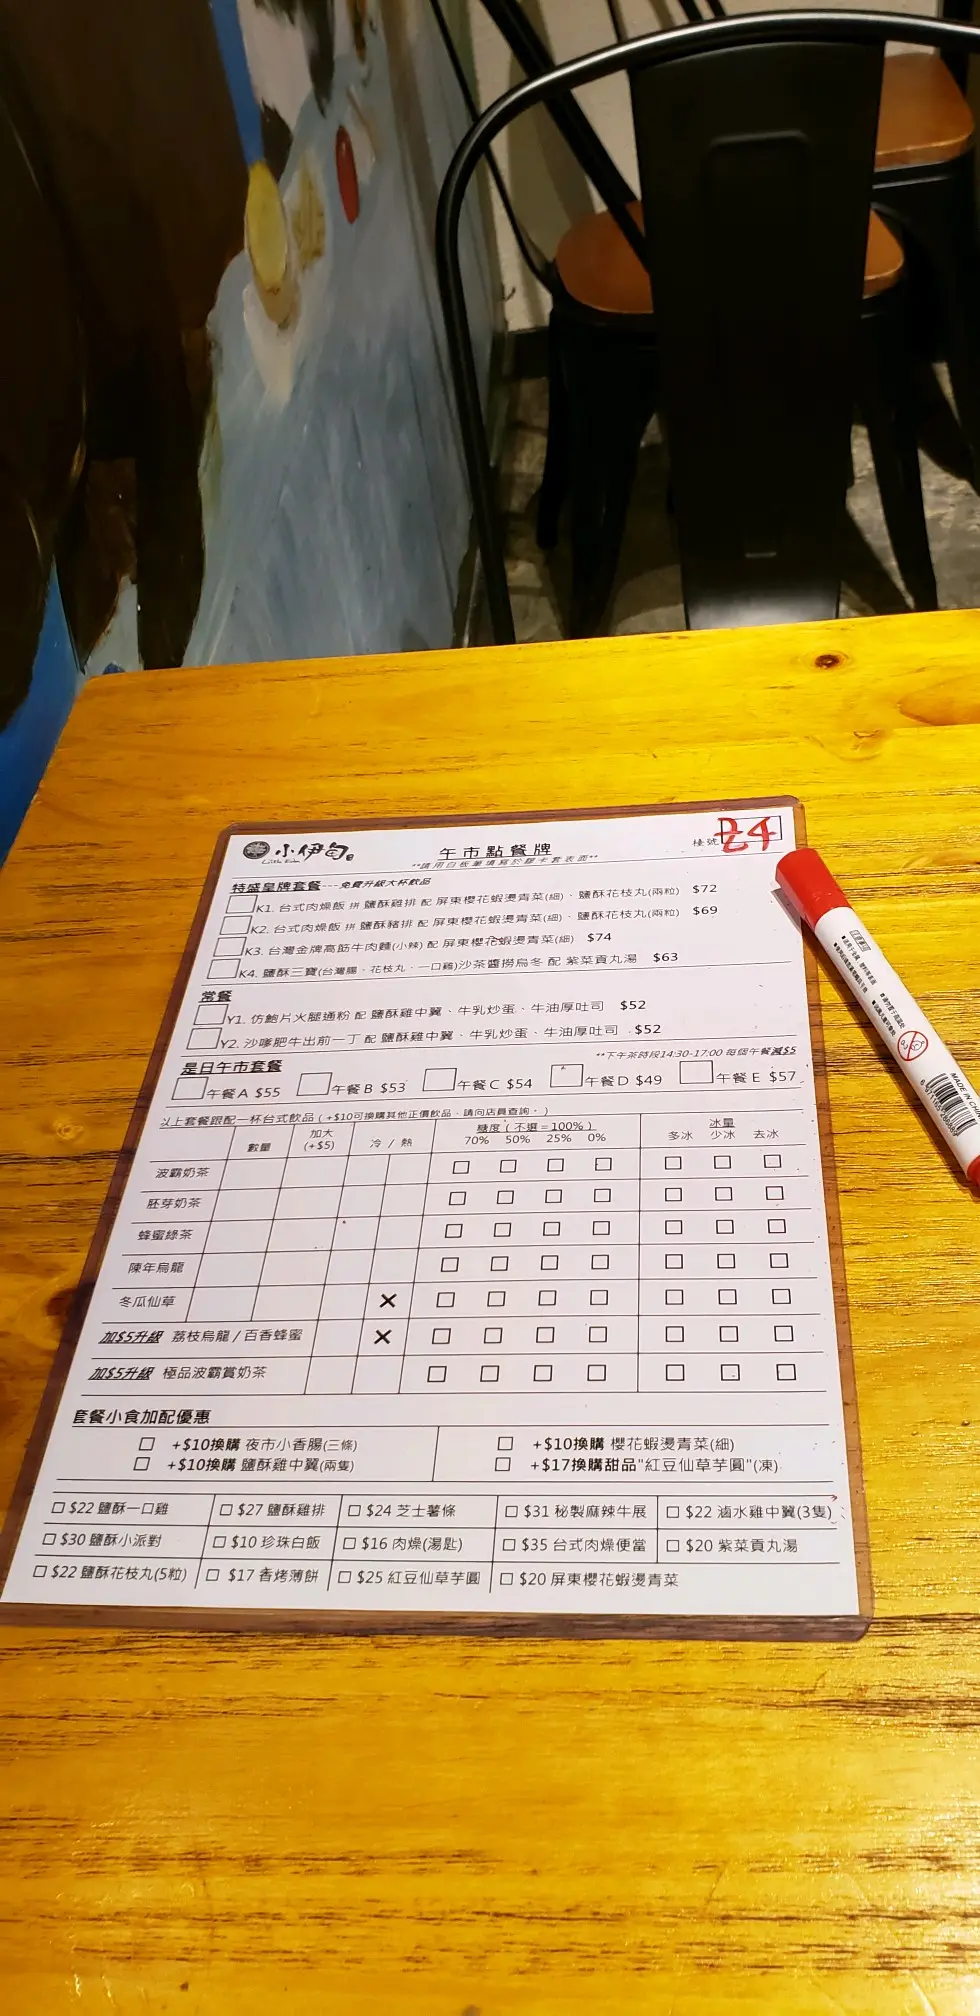 小伊旬
Little Eden
午市點餐牌
**請用白板筆填寫於膠卡套表面**
檯號 Z4
特盛皇牌套餐---免費升級大杯飲品
K1. 台式肉燥飯 拼 鹽酥雞排 配 屏東櫻花蝦燙青菜(細)、鹽酥花枝丸(兩粒) $72
K2. 台式肉燥飯 拼 鹽酥豬排 配 屏東櫻花蝦燙青菜(細)、鹽酥花枝丸(兩粒) $69
K3. 台灣金牌高筋牛肉麵(小辣) 配 屏東櫻花蝦燙青菜(細) $74
K4. 鹽酥三寶(台灣腸、花枝丸、一口雞)沙茶醬撈烏冬 配 紫菜貢丸湯 $63
常餐
Y1. 仿鮑片火腿通粉 配 鹽酥雞中翼、牛乳炒蛋、牛油厚吐司 $52
Y2. 沙嗲肥牛出前一丁 配 鹽酥雞中翼、牛乳炒蛋、牛油厚吐司 $52
是日午市套餐
**下午茶時段14:30-17:00 每個午餐減$5
午餐A $55 午餐B $53 午餐C $54 午餐D $49 午餐E $57
以上套餐跟配一杯台式飲品(+$10可換購其他正價飲品，請向店員查詢。)
數量 加大(+$5) 冷 / 熱 糖度(不選=100%) 70% 50% 25% 0% 冰量 多冰 少冰 去冰
波霸奶茶
胚芽奶茶
蜂蜜綠茶
陳年烏龍
冬瓜仙草 ✕
加$5升級 荔枝烏龍/百香蜂蜜 ✕
加$5升級 極品波霸賞奶茶
套餐小食加配優惠
+$10換購 夜市小香腸(三條) +$10換購 櫻花蝦燙青菜(細)
+$10換購 鹽酥雞中翼(兩隻) +$17換購甜品"紅豆仙草芋圓"(凍)
$22 鹽酥一口雞 $27 鹽酥雞排 $24 芝士薯條 $31 秘製麻辣牛展 $22 滷水雞中翼(3隻)
$30 鹽酥小派對 $10 珍珠白飯 $16 肉燥(湯匙) $35 台式肉燥便當 $20 紫菜貢丸湯
$22 鹽酥花枝丸(5粒) $17 香烤薄餅 $25 紅豆仙草芋圓 $20 屏東櫻花蝦燙青菜
MADE IN CHINA